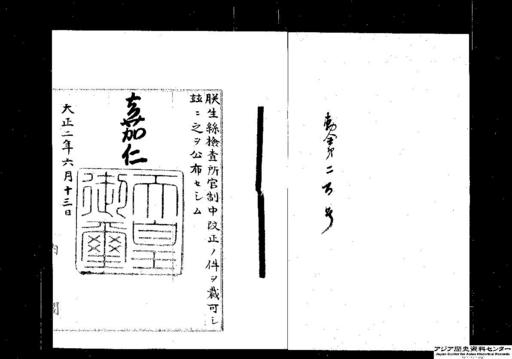 勅令第二百号
朕生絲檢査所官制中改正ノ件ヲ裁可シ
玆ニ之ヲ公布セシム
嘉仁
天皇御璽
大正二年六月十三日
内閣
アジア歴史資料センター
Japan Center for Asian Historical Records